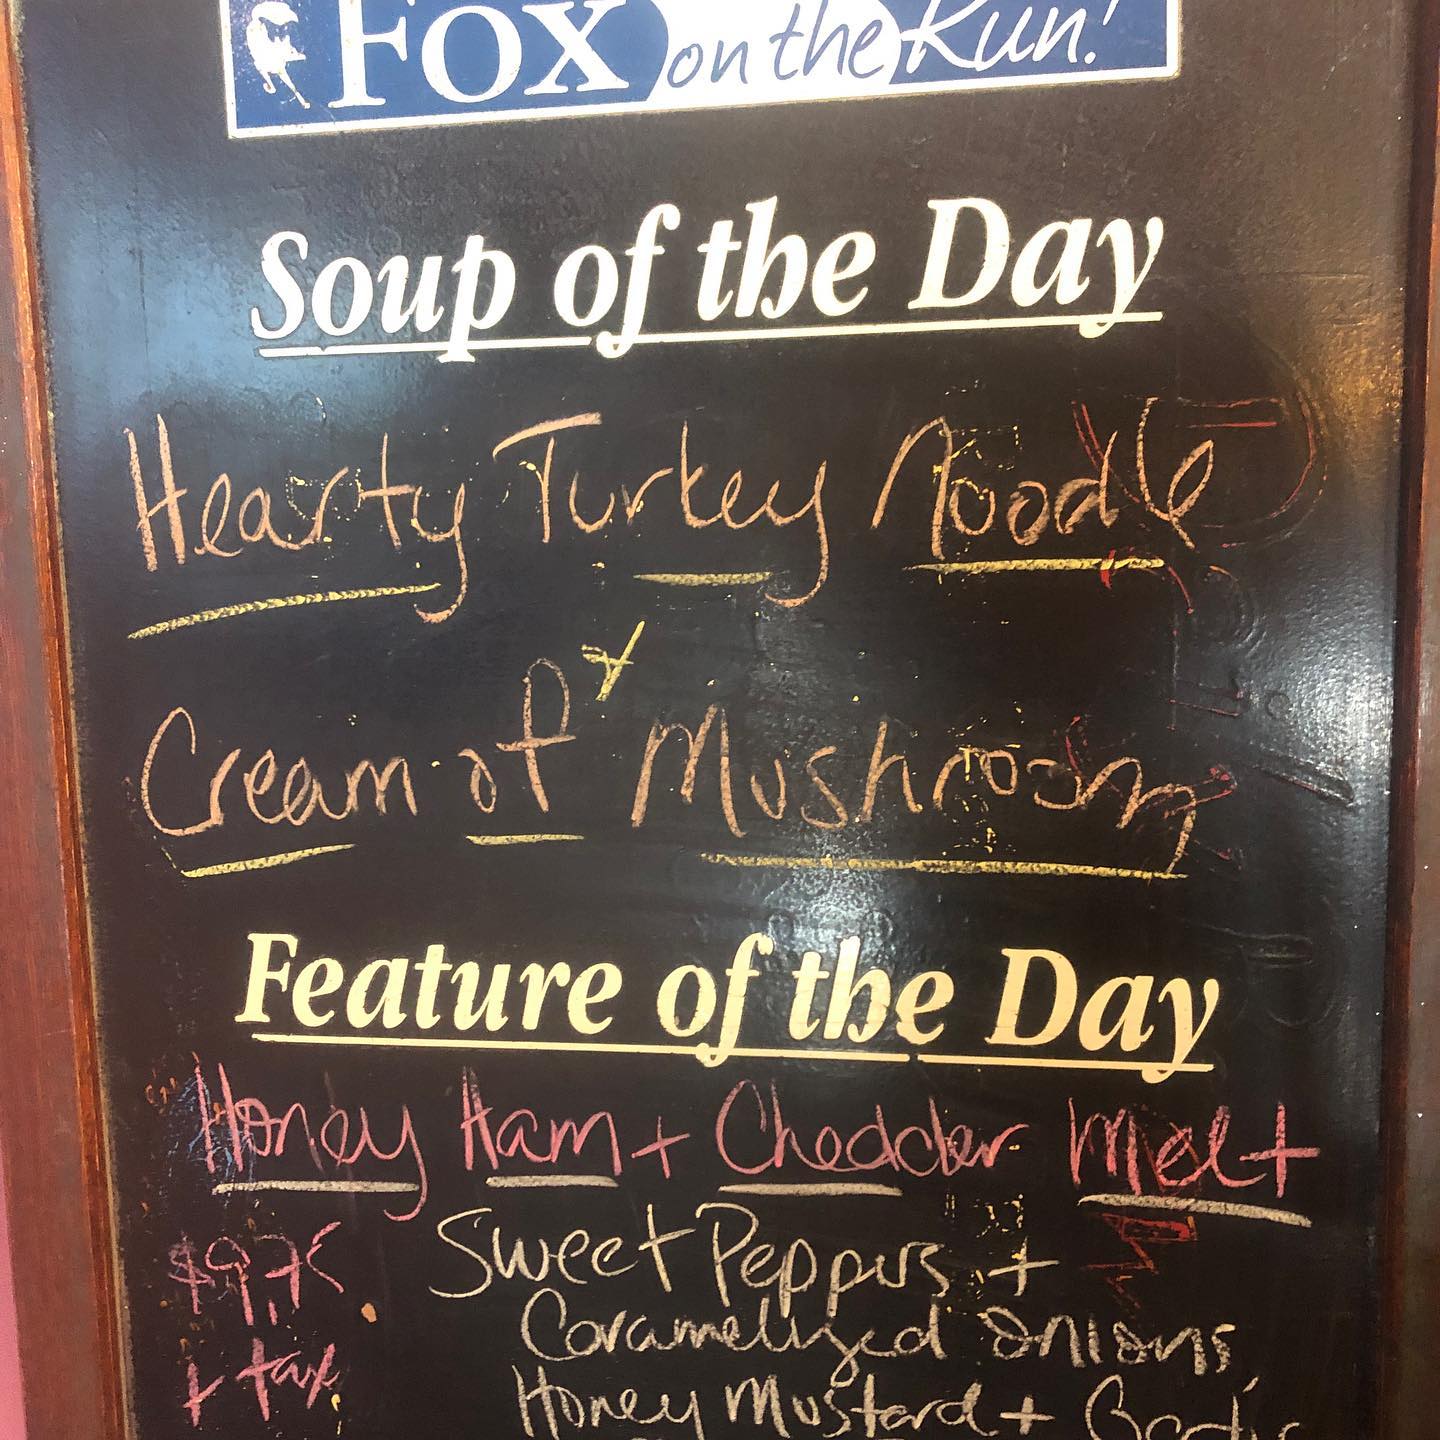 FOX on the Run!
Soup of the Day
Hearty Turkey Noodle
+
Cream of Mushroom
Feature of the Day
Honey Ham + Cheddar Melt
$9.75 Sweet Peppers +
Caramelized Onions,
+ tax
Honey Mustard +